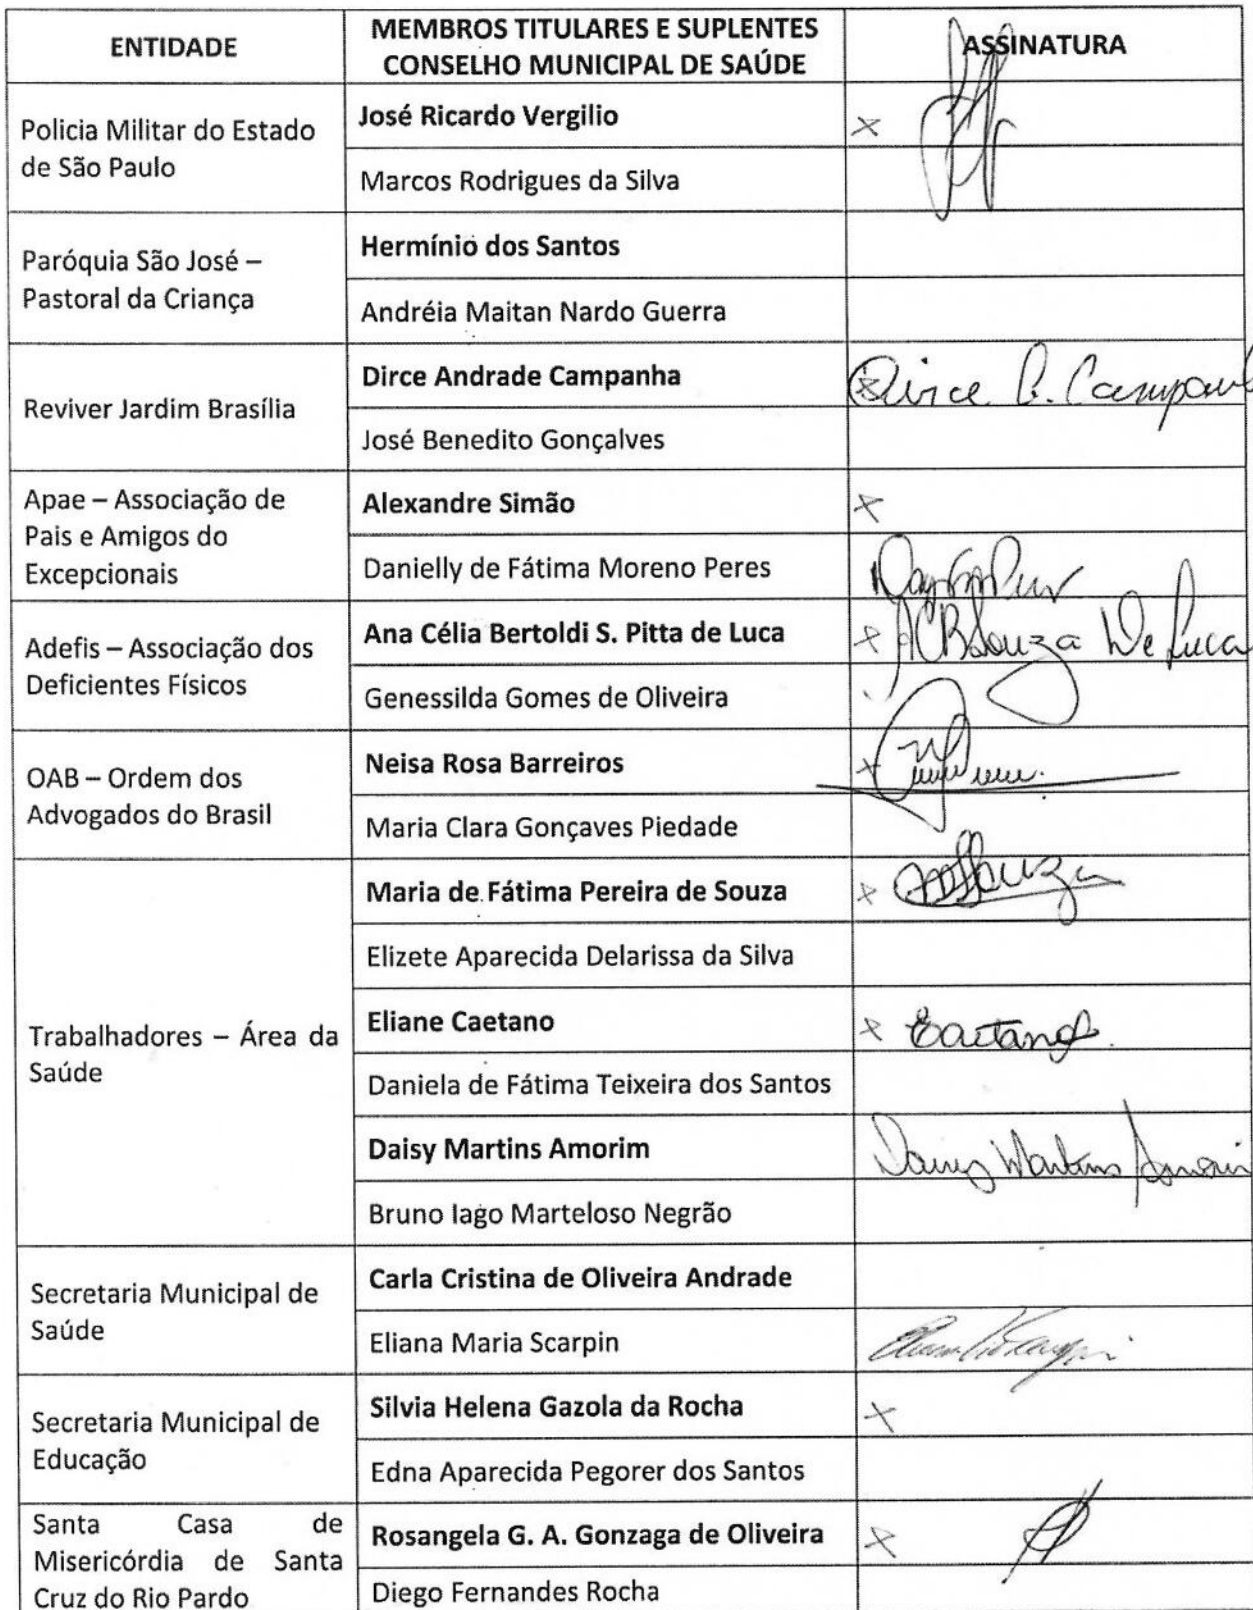 ENTIDADE
MEMBROS TITULARES E SUPLENTES
CONSELHO MUNICIPAL DE SAÚDE
ASSINATURA
Policia Militar do Estado
de São Paulo
José Ricardo Vergilio
Marcos Rodrigues da Silva
Paróquia São José –
Pastoral da Criança
Hermínio dos Santos
Andréia Maitan Nardo Guerra
Reviver Jardim Brasília
Dirce Andrade Campanha
José Benedito Gonçalves
Apae – Associação de
Pais e Amigos do
Excepcionais
Alexandre Simão
Danielly de Fátima Moreno Peres
Adefis – Associação dos
Deficientes Físicos
Ana Célia Bertoldi S. Pitta de Luca
ACBSouza De Luca
Genessilda Gomes de Oliveira
OAB – Ordem dos
Advogados do Brasil
Neisa Rosa Barreiros
Maria Clara Gonçaves Piedade
Trabalhadores – Área da
Saúde
Maria de Fátima Pereira de Souza
Elizete Aparecida Delarissa da Silva
Eliane Caetano
Daniela de Fátima Teixeira dos Santos
Daisy Martins Amorim
Daisy Martins Amorim
Bruno Iago Marteloso Negrão
Secretaria Municipal de
Saúde
Carla Cristina de Oliveira Andrade
Eliana Maria Scarpin
Secretaria Municipal de
Educação
Silvia Helena Gazola da Rocha
Edna Aparecida Pegorer dos Santos
Santa Casa de
Misericórdia de Santa
Cruz do Rio Pardo
Rosangela G. A. Gonzaga de Oliveira
Diego Fernandes Rocha